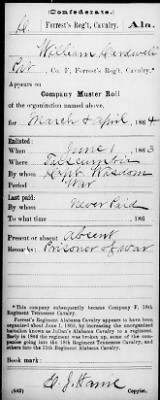 (Confederate.)
Forrest's Reg't, Cavalry. Ala.
William Hardwell
Pvt, Co. F, Forrest's Reg't, Cavalry.*
Appears on
Company Muster Roll
of the organization named above,
for March & April, 1864
Enlisted:
When June 1, 1863
Where Tuscumbia
By whom Capt. Wasdom
Period War
Last paid:
By whom Never Paid
To what time , 186
Present or absent Absent
Remarks: Prisoner of war
*This company subsequently became Company F, 18th
Regiment Tennessee Cavalry.
Forrest's Regiment Alabama Cavalry appears to have been
organized about June 1, 1863, by increasing the unorganized
battalion known as Julian's Alabama Cavalry to a regiment.
Early in 1864 the regiment was broken up, some of the com-
panies going into the 18th Regiment Tennessee Cavalry, and
others into the 11th Regiment Alabama Cavalry.
Book mark:
(642) Copyist.